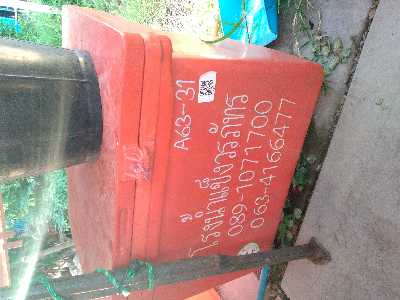 A63-31
โรงน้ำแข็งวรภัทร
089-1071700
063-4166477